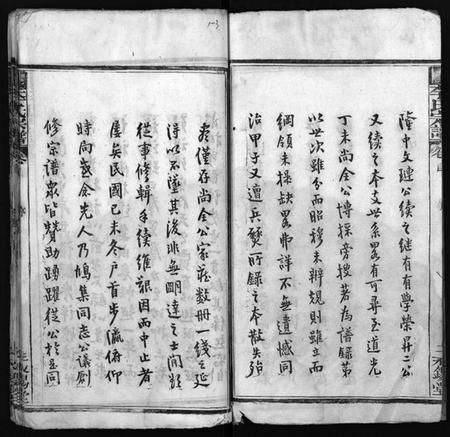 隆中文璉公續之继有有學榮昇二公
又續之本支世系畧有可尋至道光
丁未尚全公博採旁搜著為譜錄第
以世次雖分而昭穆未辨規則雖立而
綱領未操缺畧弗詳不無遺憾同
治甲子又遭兵燹所錄之本散失殆
盡僅存尚全公家藏数冊一线之延
得以不墜其後非無明達之士间欲
從事修輯手续维艰因而中止者
屡矣民國己未冬户首步瀛俯仰
時局感念先人乃鳩集同志公議創
修宗譜眾皆贊助踴躍從公於是同
李氏宗譜